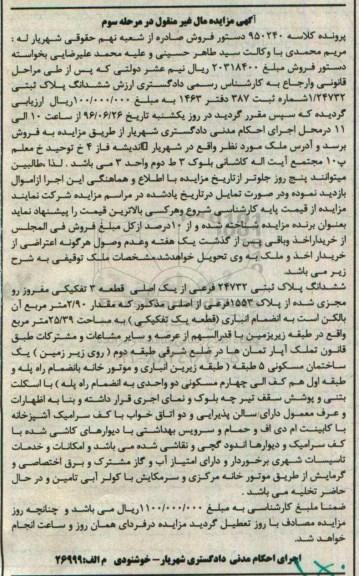 آگهی مزایده مال غیر منقول در مرحله سوم
پرونده کلاسه ۹۵۰۲۴۰ دستور فروش صادره از شعبه نهم حقوقی شهریار له :
مریم محمدی با وکالت سید طاهر حسینی و علیه محمد علیرضایی بخواسته
دستور فروش مبلغ ۲۰۳۱۸۴۰۰ ریال نیم عشر دولتی که پس از طی مراحل
قانونی وارجاع به کارشناس رسمی دادگستری ارزش ششدانگ پلاک ثبتی
۱/۲۴۷۳۲شماره ثبت ۳۸۷ دفتر ۱۴۶۳ به مبلغ ۱/۱۰۰/۰۰۰/۰۰۰ریال ارزیابی
گردیده که سپس مقرر گردید در روز یکشنبه تاریخ ۹۶/۰۶/۲۶ از ساعت ۱۰ الی
۱۱ درمحل اجرای احکام مدنی دادگستری شهریار از طریق مزایده به فروش
برسد و آدرس ملک مورد نظر واقع در شهریار اندیشه فاز ۴ خ توحید خ معلم
پ۱۰ مجتمع آیت اله کاشانی بلوک ۳ ط دوم واحد ۳ می باشد . لذا طالبین
میتوانند پنج روز جلوتر ازتاریخ مزایده با اطلاع و هماهنگی این اجرا ازاموال
بازدید نموده ودر صورت تمایل درتاریخ یادشده در مراسم مزایده شرکت نمایند
مزایده از قیمت پایه کارشناسی شروع وهرکسی بالاترین قیمت را پیشنهاد نماید
بعنوان برنده مزایده شناخته شده و از ۱۰درصد ازکل مبلغ فروش فی المجلس
از خریداراخذ وباقی پس از گذشت یک هفته وعدم وصول هرگونه اعتراضی از
خریدار اخذ و ملک به وی تحویل خواهدشدمشخصات ملک توقیفی به شرح
زیر می باشد.
ششدانگ پلاک ثبتی ۲۴۷۳۲ فرعی از یک اصلی قطعه ۳ تفکیکی مفروز رو
مجزی شده از پلاک ۱۵۵۳فرعی از اصلی مذکور که مقدار ۲/۹۰متر مربع آن
بالکن است به انضمام انباری (قطعه یک تفکیکی ) به مساحت ۲۵/۳۹متر مربع
واقع در طبقه زیرزمین با قدرالسهم از عرصه و سایر مشاعات و مشترکات طبق
قانون تملک آپار تمان ها در ضلع شرقی طبقه دوم ( روی زیر زمین ) یک
ساختمان مسکونی ۵ طبقه ( طبقه زیرین انباری و موتور خانه بانضمام راه پله و
طبقه اول هم کف الی چهارم مسکونی دو واحدی به انضمام راه پله ) با اسکلت
بتنی و پوشش سقف تیر چه بلوک و نمای اجری قرار داشته و بنا به اظهارات
و عرف معمول دارای سالن پذیرایی و دو اتاق خواب با کف سرامیک آشپزخانه
با کابینت ام دی اف و حمام و سرویس بهداشتی با دیوارهای کاشی شده با
کف سرامیک و دیوارها اندود گچی و نقاشی شده می باشد و امکانات و خدمات
تاسیسات شهری برخوردار و دارای امتیاز آب و گاز مشترک و برق اختصاصی و
گرمایش از طریق موتور خانه مرکزی و سرمکایش با کولر آبی تامین و در حال
حاضر تخلیه می باشد .
ضمنا ملبغ کارشناسی به مبلغ ۱/۱۰۰/۰۰۰/۰۰۰ریال می باشد و چنانچه روز
مزایده مصادف با روز تعطیل گردید مزایده درفردای همان روز و ساعت انجام
خواهد شد.
اجرای احکام مدنی دادگستری شهریار– خوشنودی م الف:۲۶۹۹۹